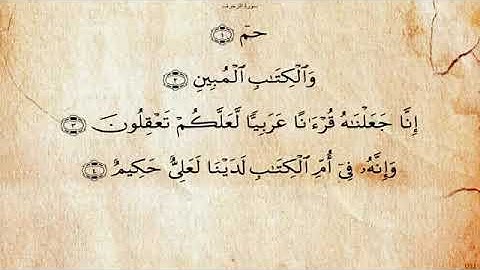 سورة الزخرف
حمٓ ١
وَٱلْكِتَٰبِ ٱلْمُبِينِ ٢
إِنَّا جَعَلْنَٰهُ قُرْءَٰنًا عَرَبِيًّا لَّعَلَّكُمْ تَعْقِلُونَ ٣
وَإِنَّهُۥ فِىٓ أُمِّ ٱلْكِتَٰبِ لَدَيْنَا لَعَلِىٌّ حَكِيمٌ ٤